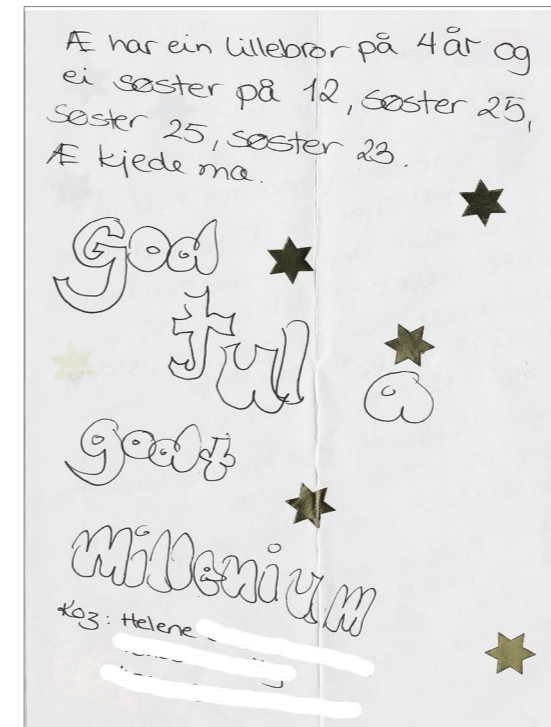 Æ har ein lillebror på 4 år og
ei søster på 12, søster 25,
søster 25, søster 23.
Æ kjede mæ.
God
jul a
godt
millenium
Koz: Helene